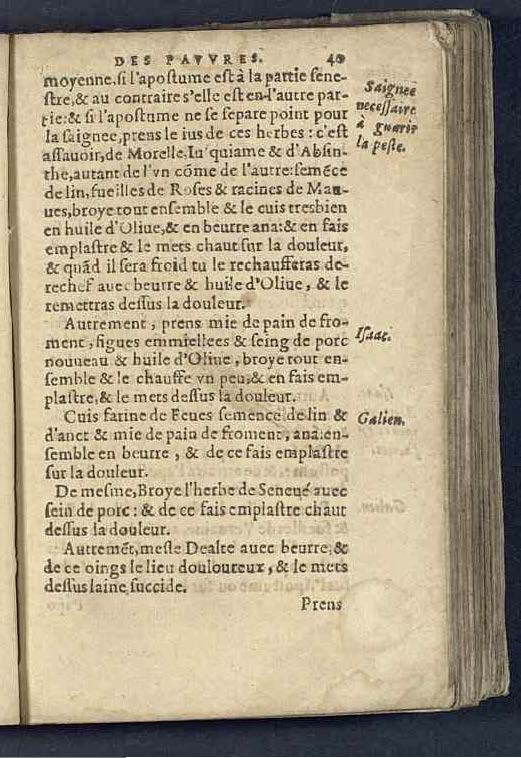 DES PAVVRES. 40
moyenne, si l'apostume est à la partie sene-
stre, & au contraire s'elle est en l'autre par-
tie: & si l'apostume ne se separe point pour
la saignee, prens le ius de ces herbes: c'est
assauoir, de Morelle, Iu'quiame & d'Absin-
the, autant de l'vn cõme de l'autre: semẽce
de lin, fueilles de Roses & racines de Mau-
ues, broye tout ensemble & le cuis tresbien
en huile d'Oliue, & en beurre ana: & en fais
emplastre & le mets chaut sur la douleur,
& quãd il sera froid tu le rechaufferas de-
rechef auec beurre & huile d'Oliue, & le
remettras dessus la douleur.
Autrement, prens mie de pain de fro-
ment, figues emmiellees & seing de porc
nouueau & huile d'Oliue, broye tout en-
semble & le chauffe vn peu, & en fais em-
plastre, & le mets dessus la douleur.
Cuis farine de Feues semence de lin &
d'anet & mie de pain de froment, ana: en-
semble en beurre, & de ce fais emplastre
sur la douleur.
De mesme, Broye l'herbe de Seneué auec
sein de porc: & de ce fais emplastre chaut
dessus la douleur.
Autremẽt, mesle Dealte auec beurre, &
de ce oings le lieu douloureux, & le mets
dessus laine succide.
Prens
Saignee
necessaire
à guarir
la peste.
Isaac.
Galien.